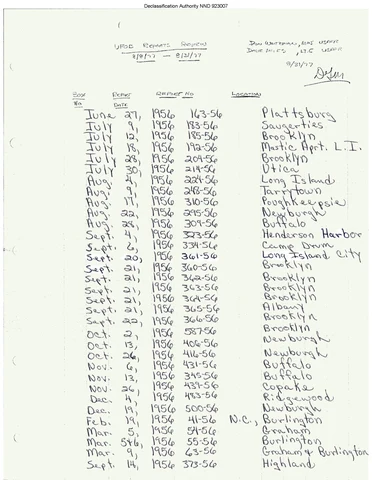 Declassification Authority NND 923007
UFOB REPORTS REVIEW
8/9/77 - 9/21/77
9/21/77
BOX
No
REPORT
DATE
REPORT NO
LOCATION
June 27, 1956 163-56 Plattsburg
July 9, 1956 183-56 Saugerties
July 12, 1956 185-56 Brooklyn
July 18, 1956 192-56 Mastic Aprt. L.I.
July 28, 1956 209-56 Brooklyn
July 30, 1956 214-56 Utica
Aug. 4, 1956 224-56 Long Island
Aug. 9, 1956 248-56 Tarrytown
Aug. 17, 1956 310-56 Poughkeepsie
Aug. 22, 1956 295-56 Newburgh
Aug. 28, 1956 309-56 Buffalo
Sept. 4, 1956 323-56 Henderson Harbor
Sept. 6, 1956 334-56 Camp Drum
Sept. 20, 1956 361-56 Long Island City
Sept. 21, 1956 360-56 Brooklyn
Sept. 21, 1956 362-56 Brooklyn
Sept. 21, 1956 363-56 Brooklyn
Sept. 21, 1956 364-56 Brooklyn
Sept. 21, 1956 365-56 Albany
Sept. 22, 1956 366-56 Brooklyn
Oct. 2, 1956 587-56 Brooklyn
Oct. 13, 1956 406-56 Newburgh
Oct. 26, 1956 416-56 Newburgh
Nov. 6, 1956 431-56 Buffalo
Nov. 13, 1956 345-56 Buffalo
Nov. 26, 1956 439-56 Copake
Dec. 4, 1956 483-56 Ridgewood
Dec. 19, 1956 500-56 Newburgh
Feb. 19, 1956 41-56 N.C., Burlington
Mar. 5, 1956 54-56 Graham
Mar. 5&6, 1956 55-56 Burlington
Mar. 9, 1956 63-56 Graham & Burlington
Sept. 14, 1956 373-56 Highland